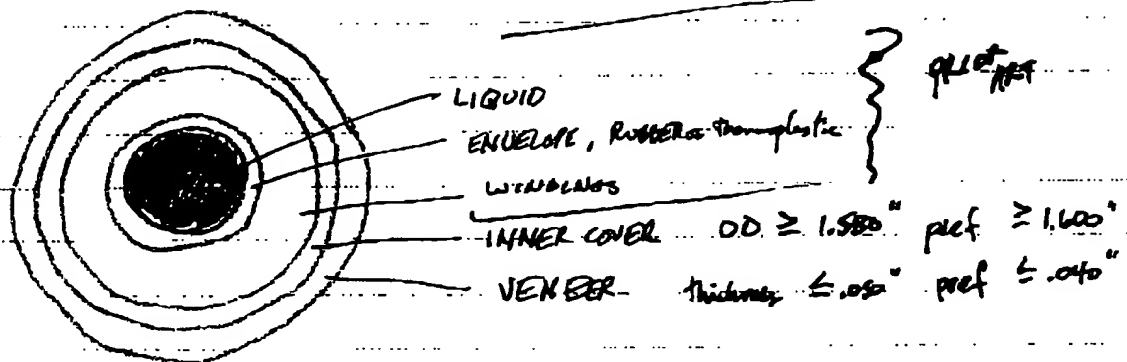 LIQUID
ENVELOPE, RUBBER or thermoplastic
WINDINGS
INNER COVER OD ≥ 1.580" pref ≥ 1.600"
VENEER thickness ≤ .050" pref ≤ .040"